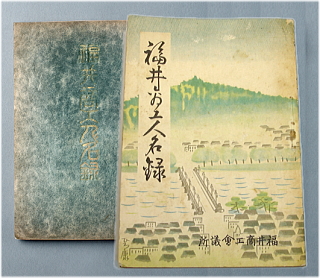 福井商工人名録
福井商工會議所
福井商工人名録